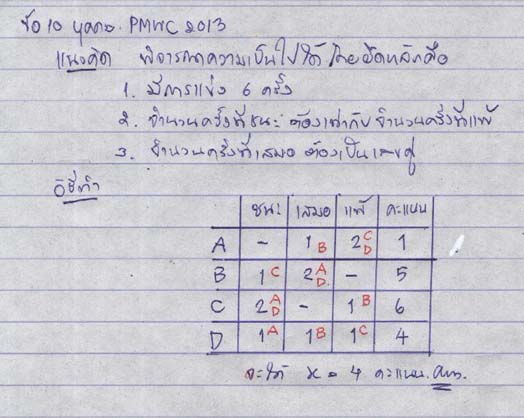 ข้อ 10 บุคคล. PMWC 2013
แนวคิด พิจารณาความเป็นไปได้ โดยยึดหลักคือ
1. มีการแข่ง 6 ครั้ง
2. จำนวนครั้งที่ชนะ ต้องเท่ากับ จำนวนครั้งที่แพ้
3. จำนวนครั้งที่เสมอ ต้องเป็นเลขคู่
วิธีทำ
ชนะ เสมอ แพ้ คะแนน
A - 1 B 2 C D 1
B 1 C 2 A D. - 5
C 2 A D - 1 B 6
D 1 A 1 B 1 C 4
จะได้ x = 4 คะแนน. Ans.